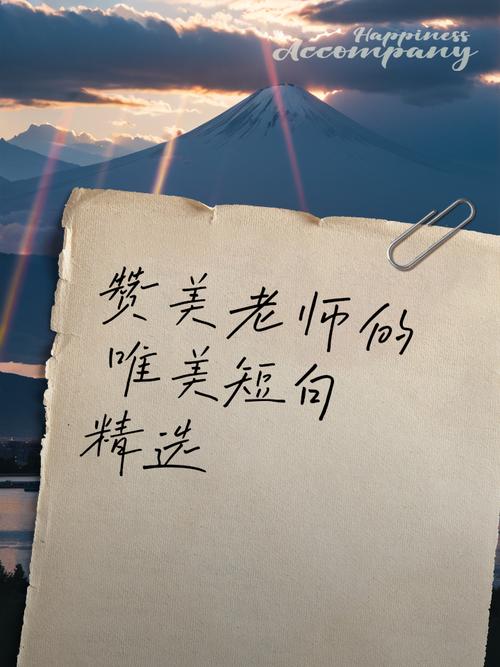 Happiness
Accompany
赞美老师的
唯美短句
精选